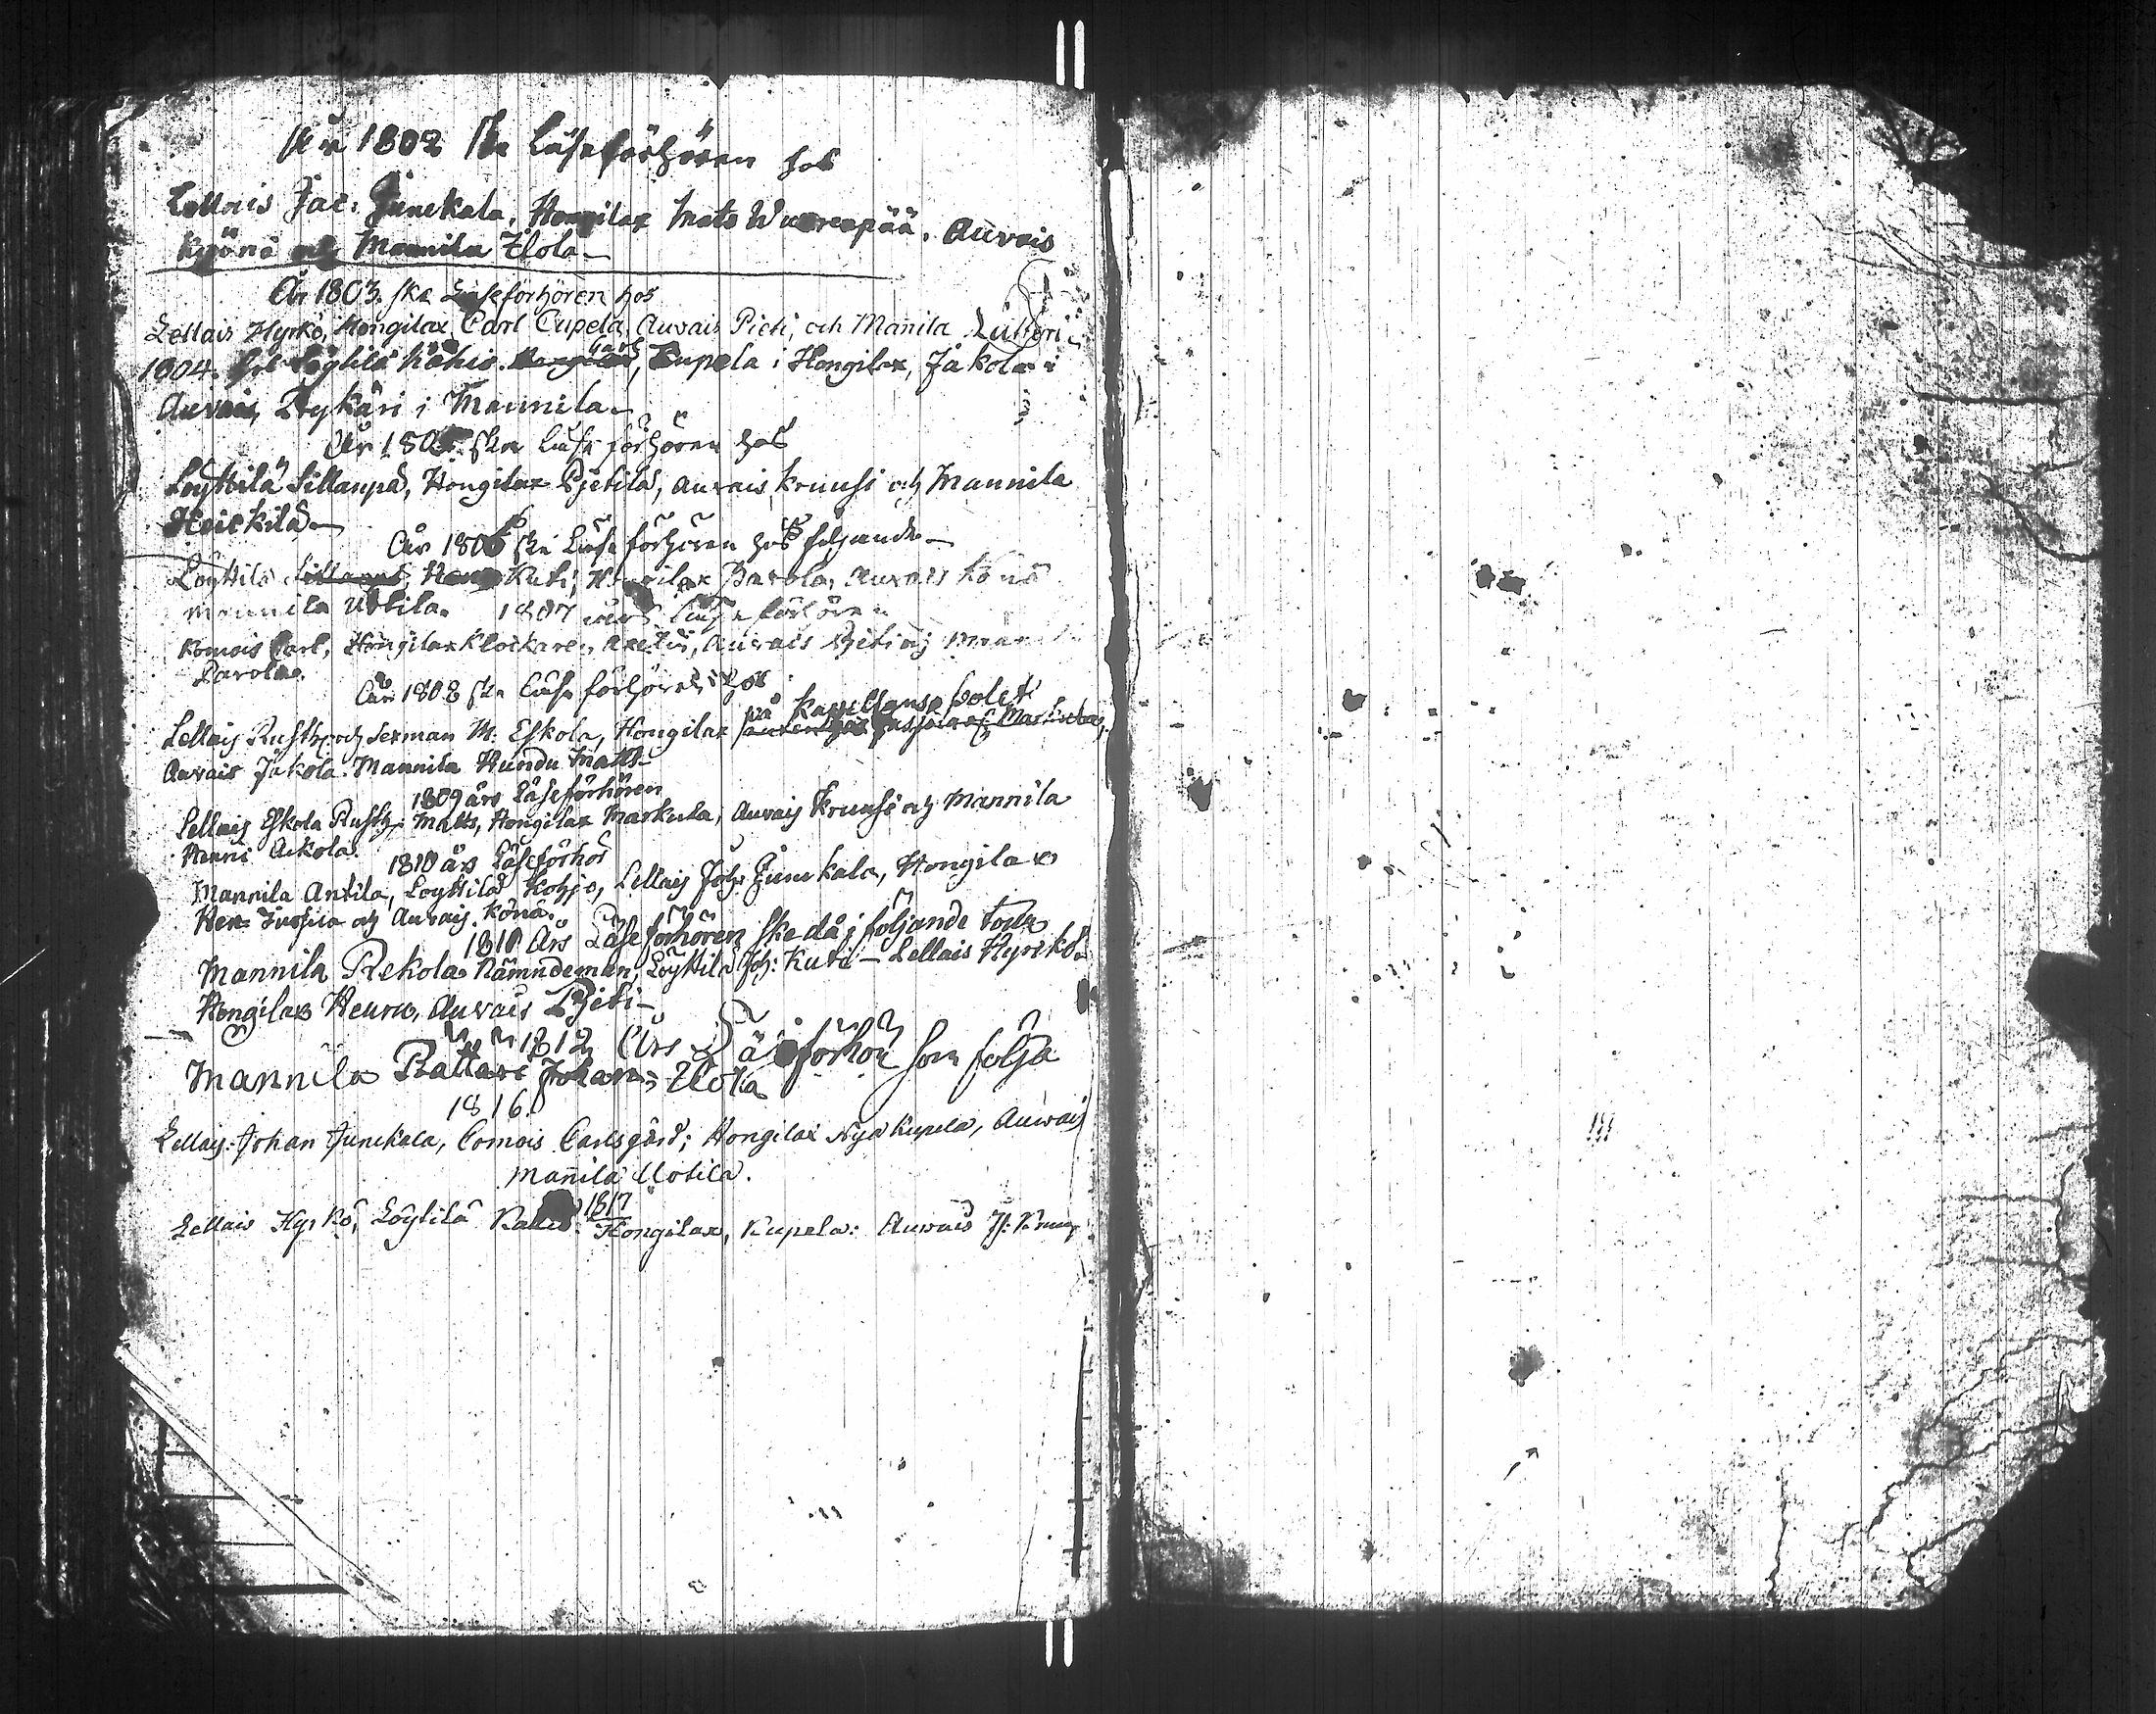 År 1802 ske Läseförhören hos
Lellais Jac: Junekala, Hongilax Mats Wuorenpää. Auvais
Kyönä och Mannila Ilola
År 1803 ske Läseförhören hos
Lellais Hyrkö, Hongilax Carl Cupela, Auvais Pieti, och Manila
1804. hos Löytilä Kåhio. Carl Cupela i Hongilax, Jakola i
Auvais, Rykäri i Mannila
År 1805 ske Läseförhören hos
Löyttilä Sillanpä, Hongilax Pjetilä, Auvais Kruusi och Mannila
Heickilä
År 1806 ske Läseförhören hos följande
Löyttilä Kuti, Hongilax Parola, Auvais Könä
Mannila Uotila. 1807 års Läseförhören
Komois Carl, Hongilax Klockaren, Auvais Pjeti och
Parola.
År 1808 ske Läseförhören hos
på Kapellans bolet
Lellais Rusth: och Sexman M: Eskola, Hongilax
Auvais Jakola. Mannila Hundu Matts
1809 års Läseförhören
Lellais Eskola Rusth: Matts, Hongilax Markula, Auvais Kruusi och Mannila
Henni Ackola.
1810 års Läseförhör
Mannila Antila, Loyttilä Kohjo, Lellais Joh: Junekala, Hongilax
Hen: Jussila och Auvais Könä.
1811 Års Läseförhören ske då i följande
Mannila Rekola Nämndeman, Löyttilä Joh: Kuti – Lellais Hyrckö
Hongilax Heuru, Auvais Pjeti
1812 Års Läseförhör som följa
Mannila Rättäri Johan: Ilola
1816
Lellais: Johan Junekala, Comois Carlsgård; Hongilax Nya Kupela, Auwais
Mañila Uotila.
1817
Lellais Hyrkö, Löytilä Hongilax, Kupela: Auvais